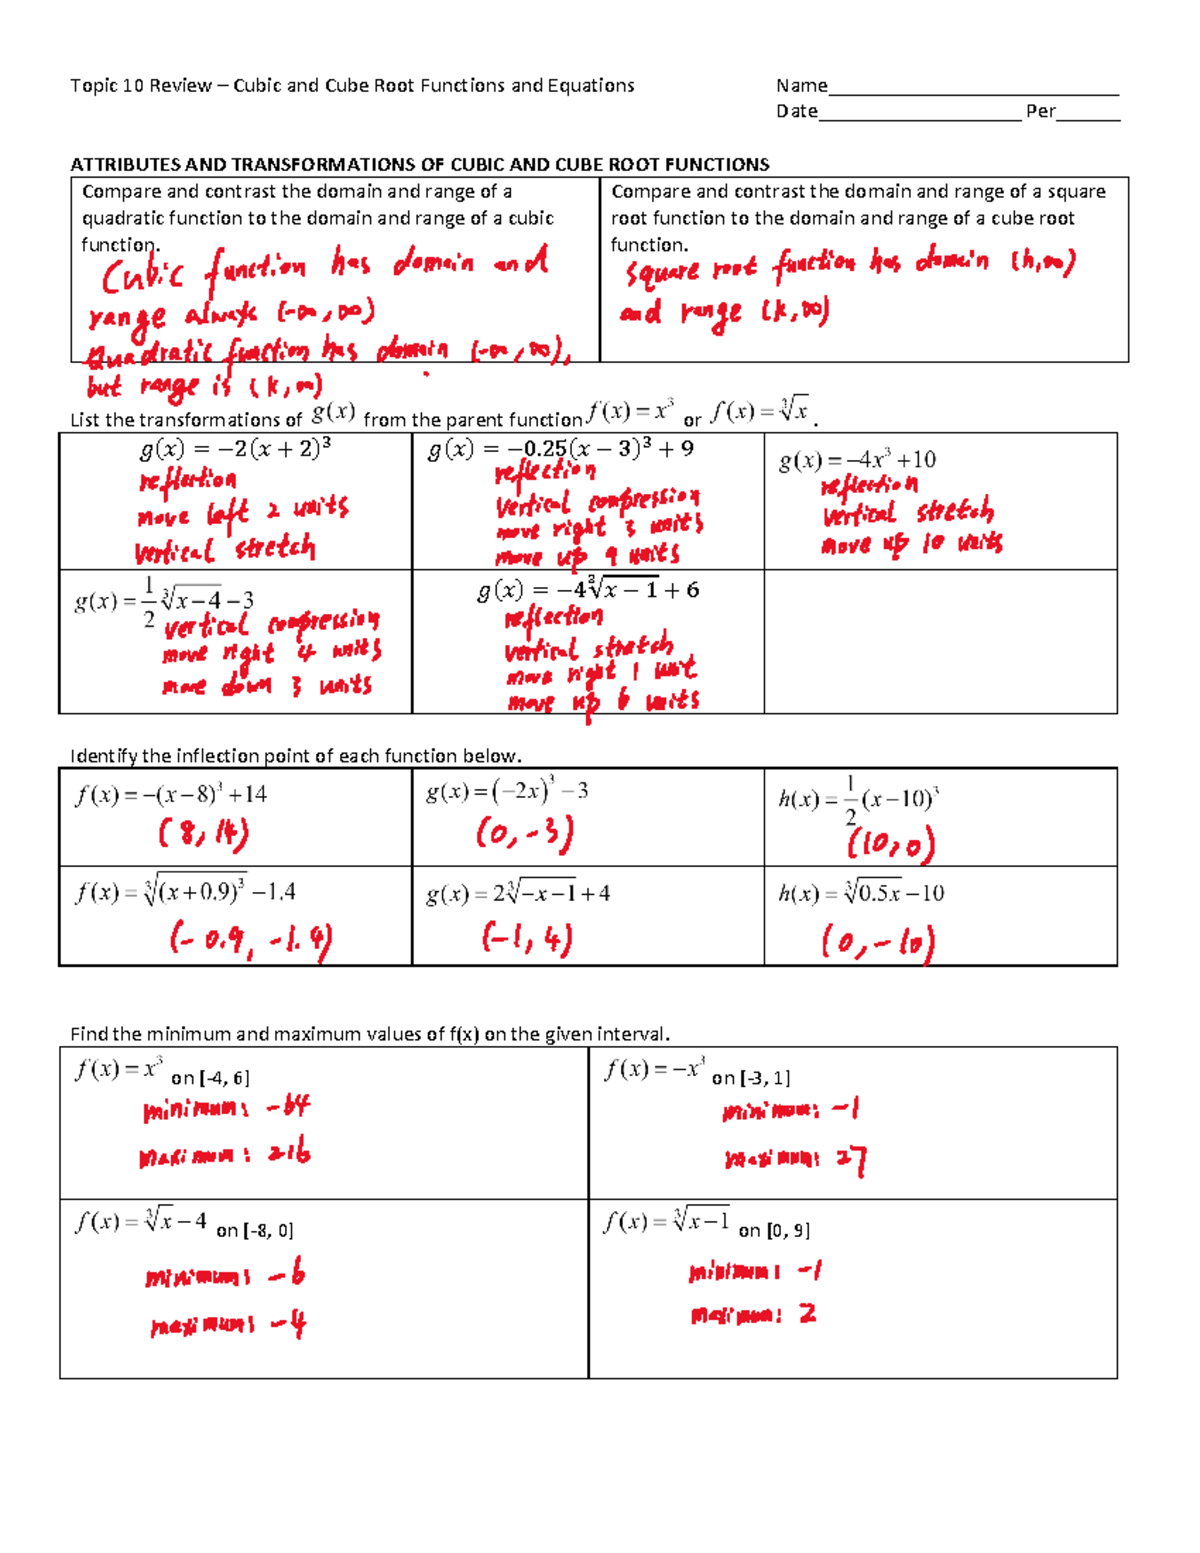 Topic 10 Review – Cubic and Cube Root Functions and Equations
Name____________________________
Date____________________ Per______
ATTRIBUTES AND TRANSFORMATIONS OF CUBIC AND CUBE ROOT FUNCTIONS
Compare and contrast the domain and range of a
quadratic function to the domain and range of a cubic
function.
Cubic function has domain and
range always (-∞, ∞)
Quadratic function has domain (-∞, ∞),
but range is (k, ∞)
Compare and contrast the domain and range of a square
root function to the domain and range of a cube root
function.
square root function has domain (h, ∞)
and range (k, ∞)
List the transformations of g(x) from the parent function f(x) = x³ or f(x) = ∛x .
g(x) = −2(x + 2)³
reflection
move left 2 units
vertical stretch
g(x) = −0.25(x − 3)³ + 9
reflection
vertical compression
move right 3 units
move up 9 units
g(x) = −4x³ + 10
reflection
vertical stretch
move up 10 units
g(x) = 1/2 ∛(x − 4) − 3
vertical compression
move right 4 units
move down 3 units
g(x) = −4∛(x − 1) + 6
reflection
vertical stretch
move right 1 unit
move up 6 units
Identify the inflection point of each function below.
f(x) = −(x − 8)³ + 14
(8, 14)
g(x) = (−2x)³ − 3
(0, -3)
h(x) = 1/2 (x − 10)³
(10, 0)
f(x) = ∛((x + 0.9)³) − 1.4
(-0.9, -1.4)
g(x) = 2∛(−x − 1) + 4
(-1, 4)
h(x) = ∛(0.5x) − 10
(0, -10)
Find the minimum and maximum values of f(x) on the given interval.
f(x) = x³ on [-4, 6]
minimum: -64
maximum: 216
f(x) = −x³ on [-3, 1]
minimum: -1
maximum: 27
f(x) = ∛x − 4 on [-8, 0]
minimum: -6
maximum: -4
f(x) = ∛(x − 1) on [0, 9]
minimum: -1
maximum: 2